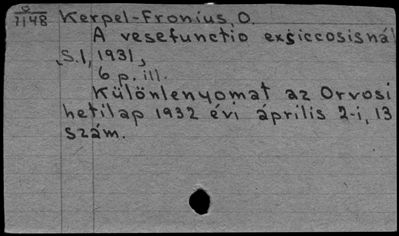 O
7148 Kerpel-Fronius, O.
A vesefunctio exsiccosisnál
S.l, 1931,
6 p. ill.
Különlenyomat az Orvosi
hetilap 1932 évi április 2-i, 13
szám.